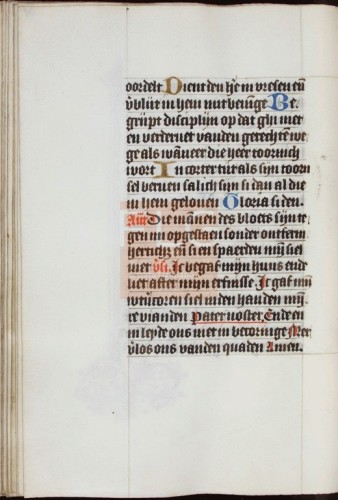 oordelt Dient den h̄e in vresen eñ
v̄blijt in hem mit bevinge Be
gript disciplijn op dat ghi niet
en verdervet vanden gerechtē we
ge als wāneer die heer toornich
wort In corter tijt als sijn toorn
sel bernen salich sijn si dan al die
in hem geloven Gloria si den.
Añ Die mānen des bloets sijn te
gen mi opgestaen sonder ontferm
herticht̄ eñ si en spaerden mijn̄ siel
niet v̄s. Ic begaf mijn huus ende
liet after mijn erfnisse Ic gaf mijn̄
wtv̄coren siel in den handen mijn̄
re vianden Pater noster. Ende en
in leyde ons niet in becoringe Mer
v̄los ons vanden quaden Amen.